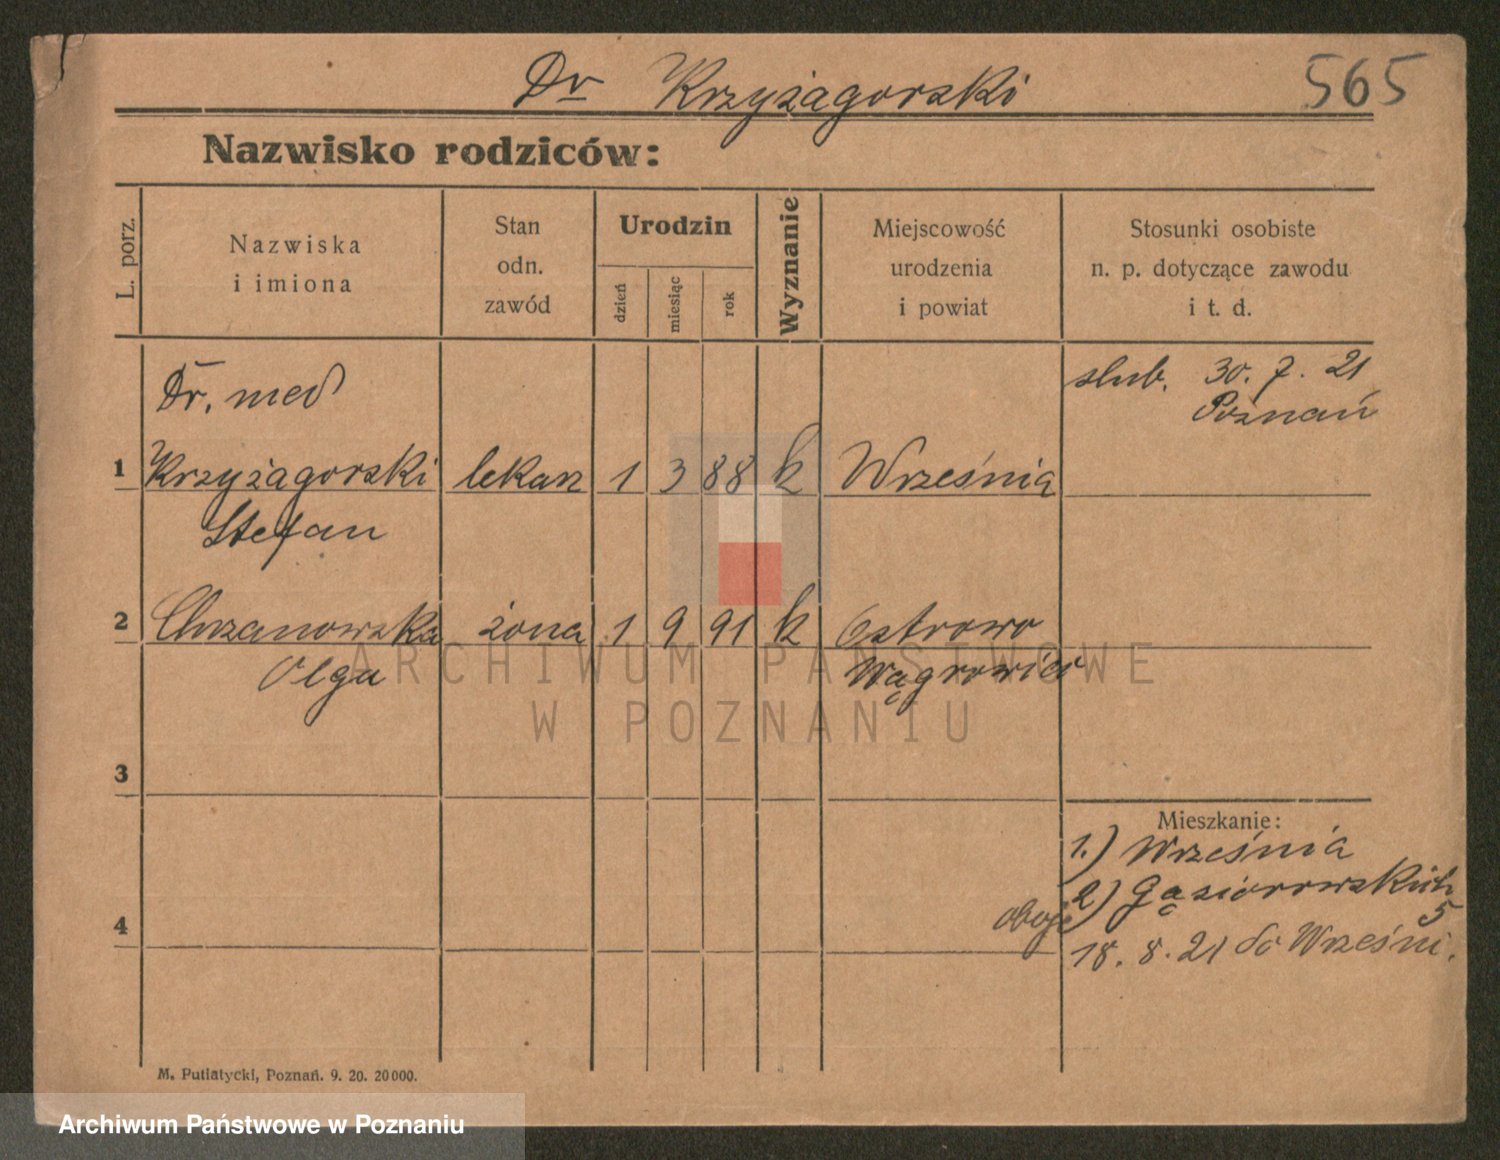 Dr Krzyżagorski
565
Nazwisko rodziców:
L. porz.
Nazwiska
i imiona
Stan
odn.
zawód
Urodzin
dzień
miesiąc
rok
Wyznanie
Miejscowość
urodzenia
i powiat
Stosunki osobiste
n. p. dotyczące zawodu
i t. d.
Dr. med
slub. 30. 7. 21
Poznań
1 Krzyżagorski lekarz 1 3 88 k Września
Stefan
2 Chrzanowska żona 1 9 91 k Ostrowo
Olga Wągrowiec
3
Mieszkanie:
1.) Września
2) Gąsiorowskich
5
4
oboje 18. 8. 21 do Wrześni.
M. Putiatycki, Poznań. 9. 20. 20000.
ARCHIWUM PAŃSTWOWE
W POZNANIU
Archiwum Państwowe w Poznaniu